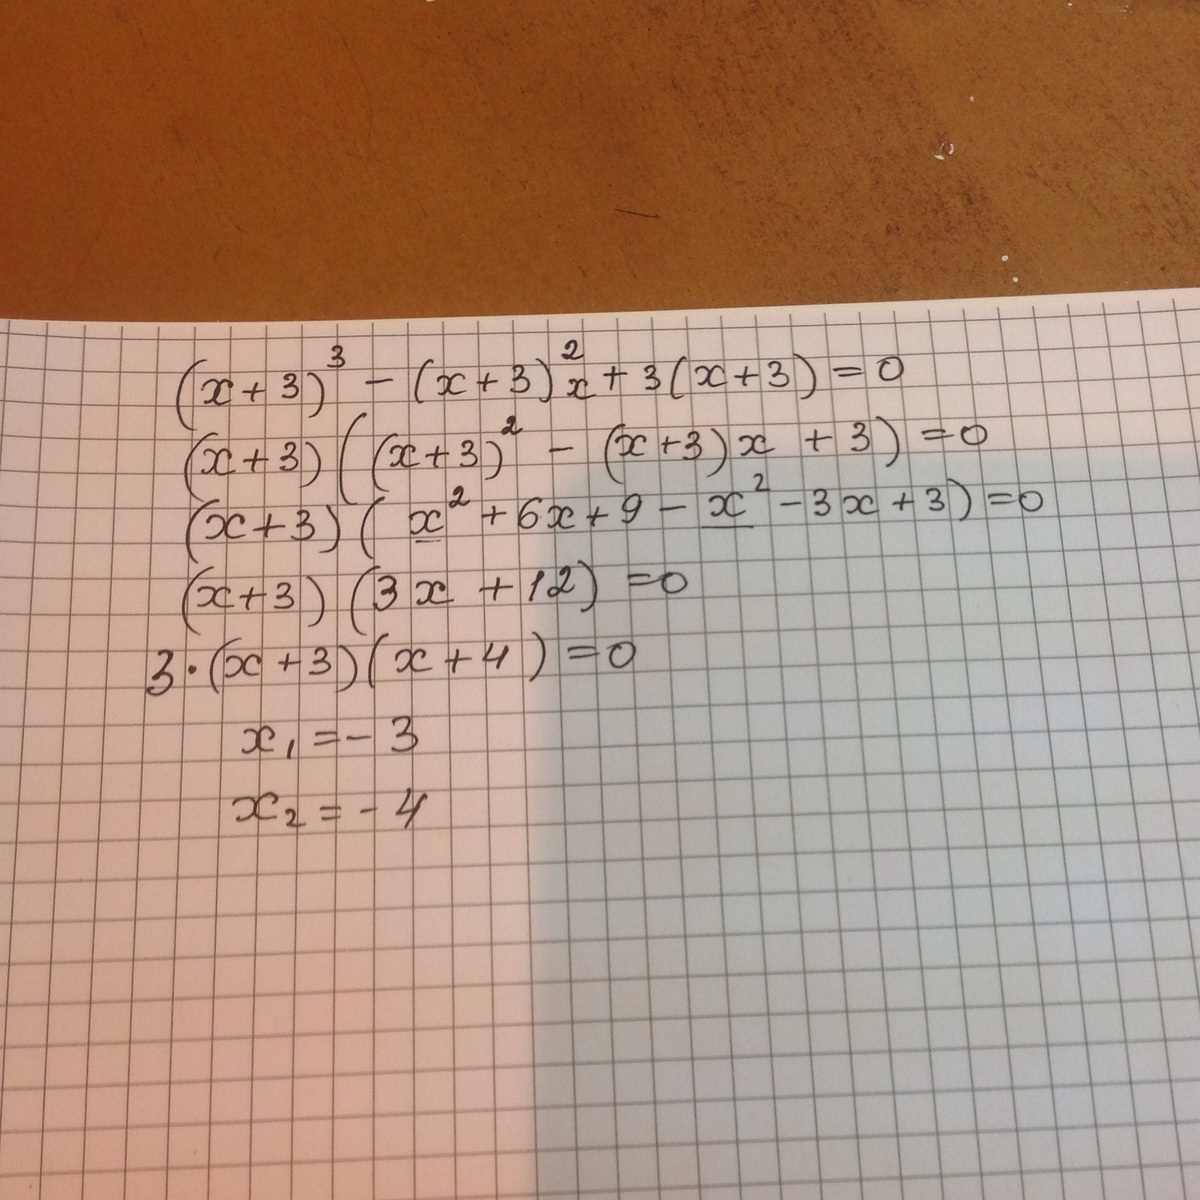 (x+3)³ - (x+3)²x + 3(x+3) = 0
(x+3)((x+3)² - (x+3)x + 3) = 0
(x+3)(x² + 6x + 9 - x² - 3x + 3) = 0
(x+3)(3x + 12) = 0
3·(x+3)(x+4) = 0
x₁ = -3
x₂ = -4